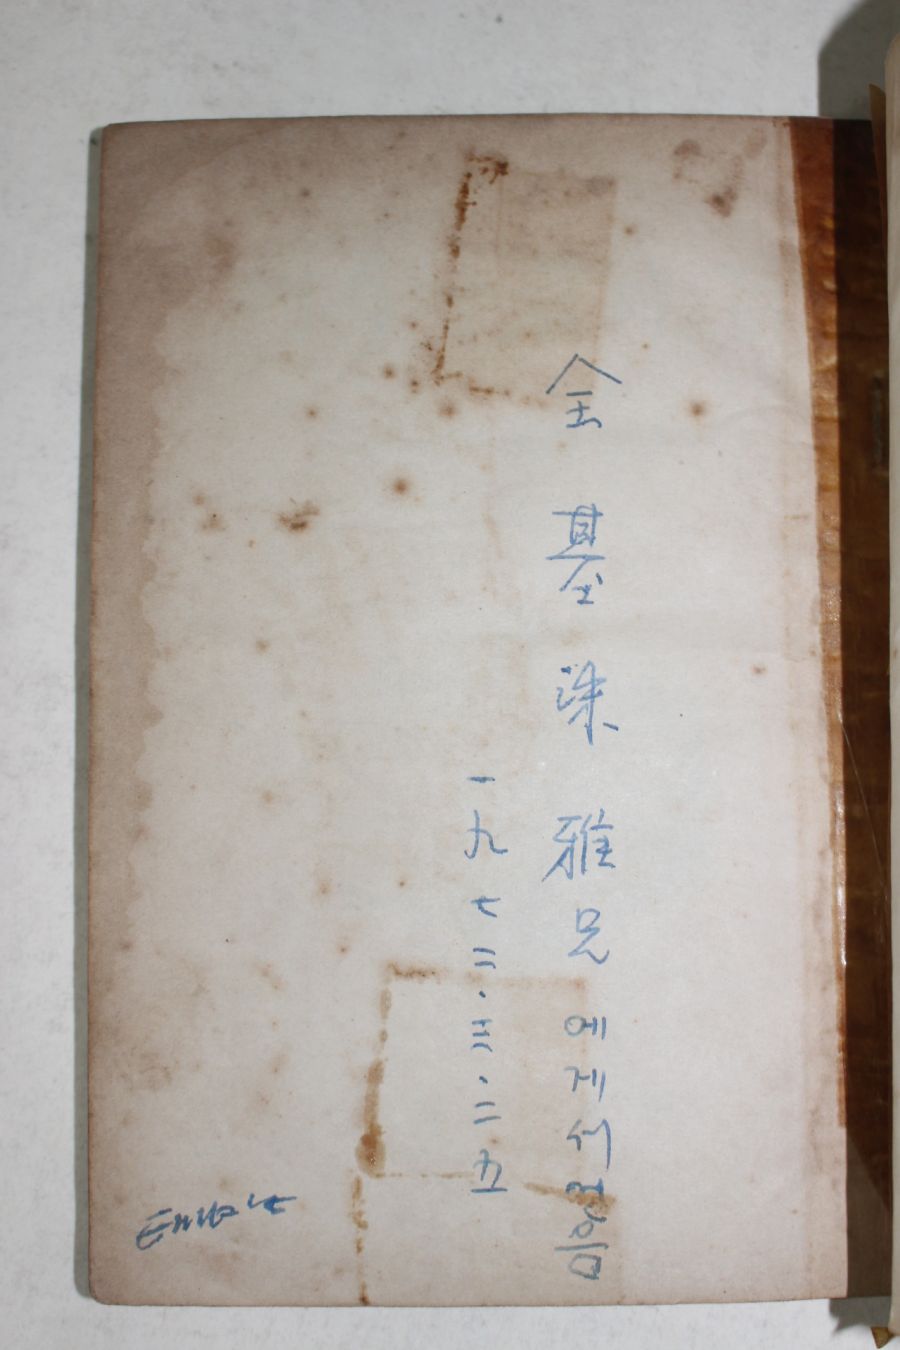 金基洙雅兄에게서
一九七二.三.二五